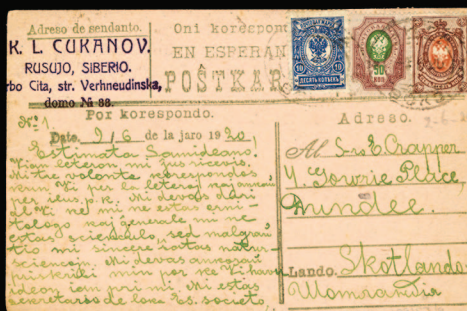 Adreso de sendanto.
K. L. CUKANOV.
RUSUJO, SIBERIO.
rbo Cita, str. Verhneudinska,
domo № 33.
Oni korespon
EN ESPERAN
POŜTKAR
10 10
ДЕСЯТЬ КОПѢЕКЪ
50
КОП
Por korespondo.
№ 1
Dato 9/6 de la jaro 1920
Estimata Samideano!
Vian leteron mi ĵus ricevis.
Mi tre volonte korespondos
kun Vi per la leteroj kaj
per ilus. p.k. Mi devas diri
al Vi ke mi ne estas
kaj ĝenerale mi ne
estas scienculo, sed malgraŭ
tio mi sincere ŝatas
sciencon. Mi devas ankoraŭ
por ke Vi havu
ideon pri mi. Mi estas
sekretario de loka Es. societo
Adreso.
Al S-ro E. Crapper
4. Gowrie Place,
Dundee.
Lando. Skotlando